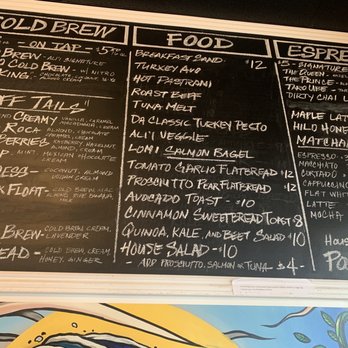 COLD BREW
... ON TAP -
BREW - ALII SIGNATURE
COLD BREW - W/ NITRO
TAILS"
CREAMY
ROCA
BERRIES
COLD BREW
FLOAT -
BREW - COLD BREW,
LAVENDER
COLD BREW, CREAM,
HONEY, GINGER
FOOD
BREAKFAST SAND $12
TURKEY AVO
HOT PASTRAMI
ROAST BEEF
TUNA MELT
DA CLASSIC TURKEY PESTO
ALI'I VEGGIE
LOMI SALMON BAGEL
TOMATO GARLIC FLATBREAD - $12
PROSCIUTTO PEAR FLATBREAD - $12
AVOCADO TOAST - $10
CINNAMON SWEETBREAD TOAST $8
QUINOA, KALE, AND BEET SALAD $10
HOUSE SALAD - $10
- ADD PROSCIUTTO, SALMON OR TUNA - $4 -
ESPRE
$5 - SIGNATURE
THE QUEEN -
THE PRINCE -
TARO UBE -
DIRTY CHAI L
MAPLE LAT
HILO HONE
MATCHA
ESPRESSO -
MACCHIATO
CORTADO
CAPPUCCINO
FLAT WHIT
LATTE
MOCHA
HOUS